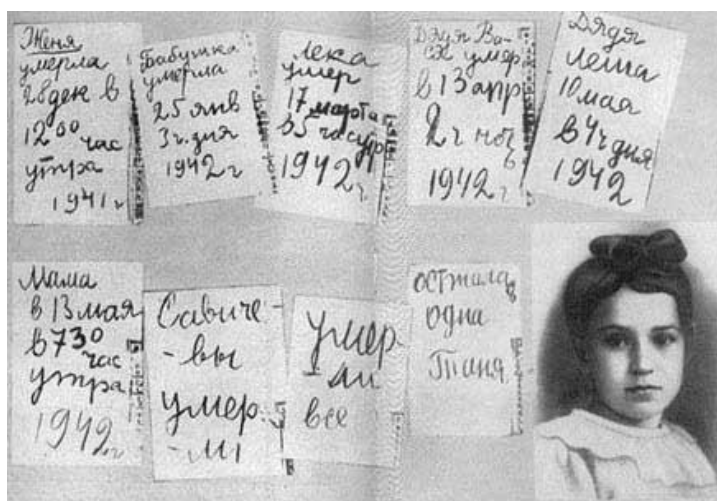 Женя
умерла
28 дек в
12 00 час
утра
1941 г
Бабушка
умерла
25 янв
3 ч. дня
1942 г
Лека
умер
17 марта
в 5 час ут
1942 г.
Дядя Ва-
ся умер
в 13 апр
2 ч ноч
1942 г
Дядя
Леша
10 мая
в 4 ч дня
1942
Мама
в 13 мая
в 7 30
час
утра
1942 г
Савиче-
-вы
умер
-ли
умер
-ли
все
осталась
одна
Таня